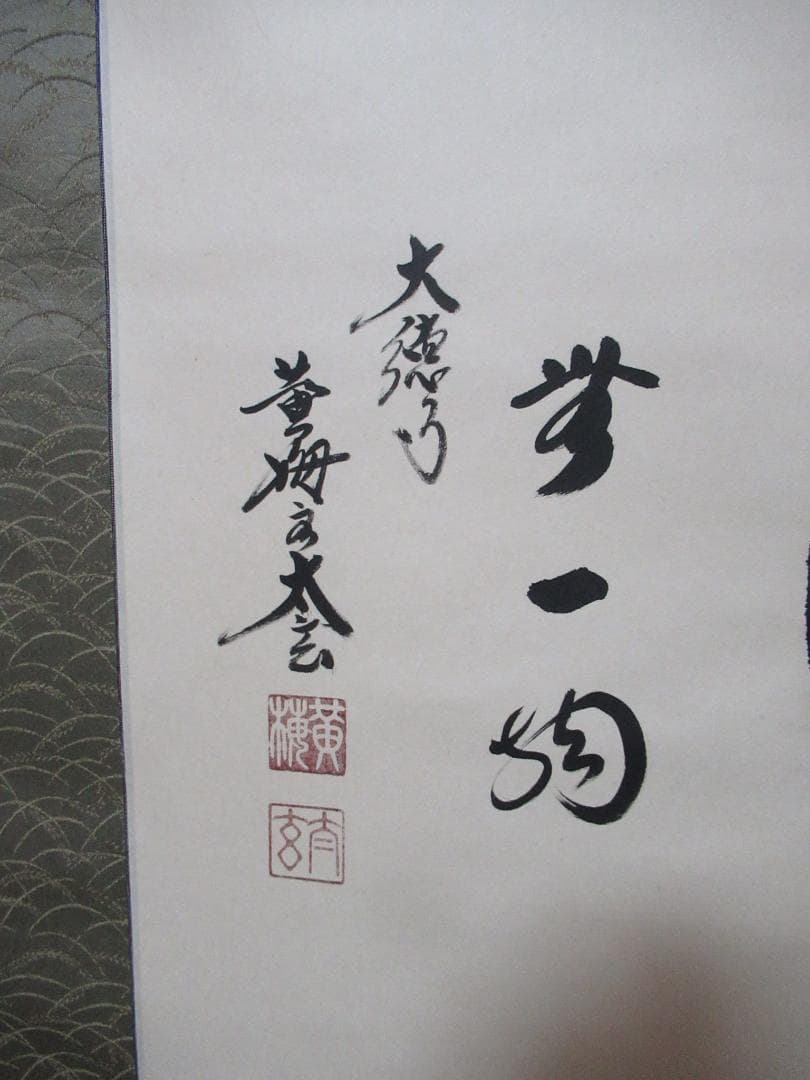 無一物
大徳寺
黄梅太玄
黄梅
太玄